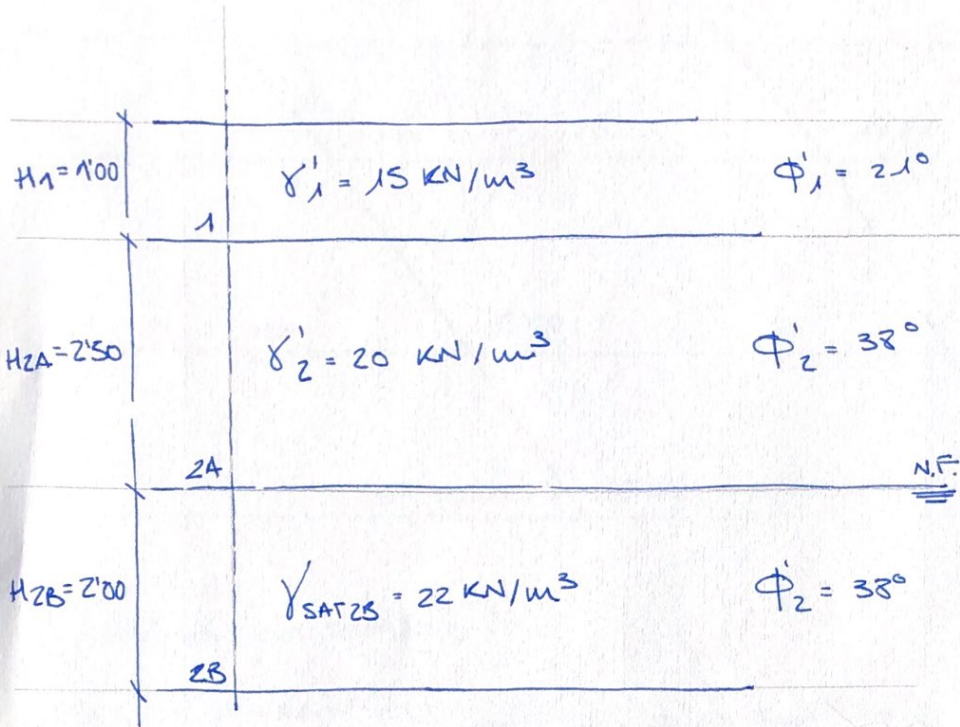 H1=1'00 γ'1 = 15 KN/m³ Φ'1 = 21°
1
H2A=2'50 γ'2 = 20 KN/m³ Φ'2 = 38°
2A N.F.
H2B=2'00 γSAT2B = 22 KN/m³ Φ'2 = 38°
2B